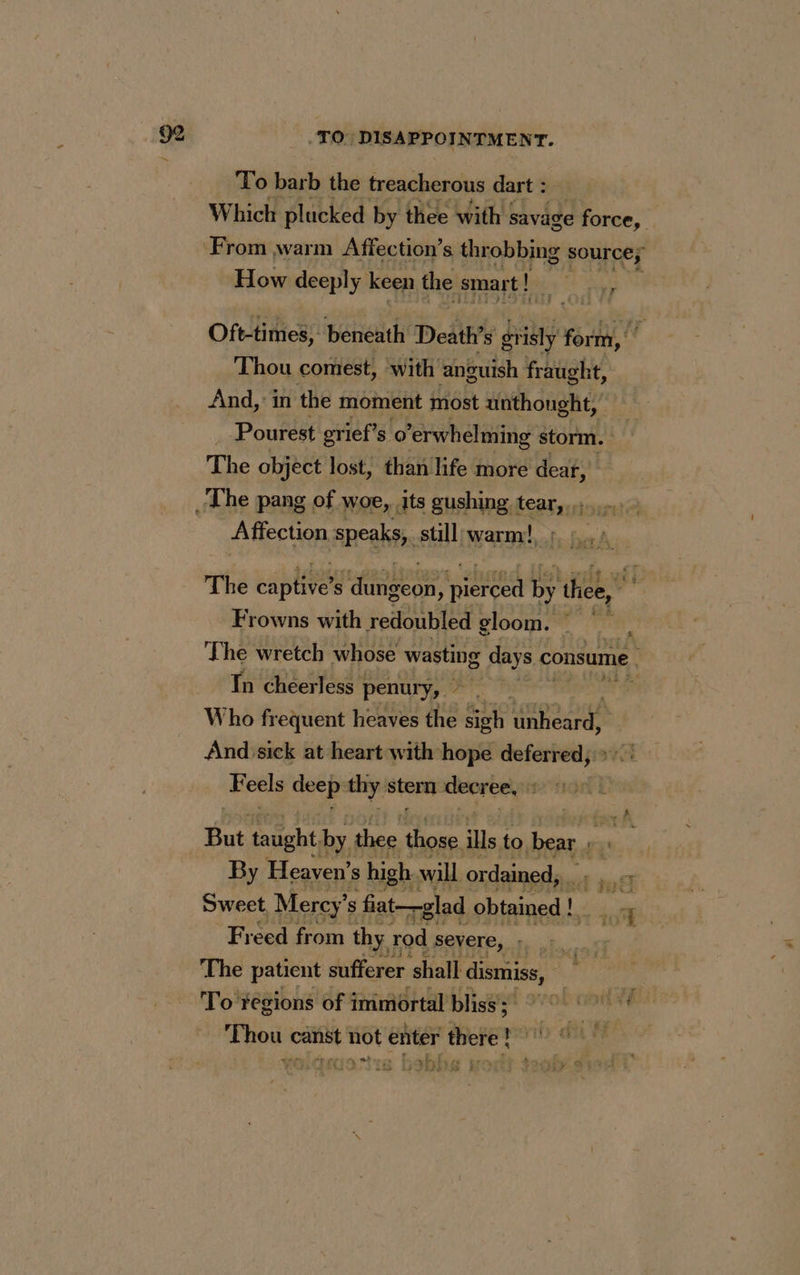 92 TO DISAPPOINTMENT.
To barb the treacherous dart :
Which plucked by thee with savage force,
From warm Affection's throbbing source,
How deeply keen the smart !
Oft-times, beneath Death's grisly form,
Thou comest, with anguish fraught,
And, in the moment most unthought,
Pourest grief's o'erwhelming storm.
The object lost, than life more dear,
The pang of woe, its gushing tear,
Affection speaks, still warm!
The captive's dungeon, pierced by thee,
Frowns with redoubled gloom.
The wretch whose wasting days consume
In cheerless penury,
Who frequent heaves the sigh unheard,
And sick at heart with hope deferred,
Feels deep thy stern decree.
But taught by thee those ills to bear
By Heaven's high will ordained,
Sweet Mercy's fiat—glad obtained !
Freed from thy rod severe,
The patient sufferer shall dismiss,
To regions of immortal bliss ;
Thou canst not enter there !